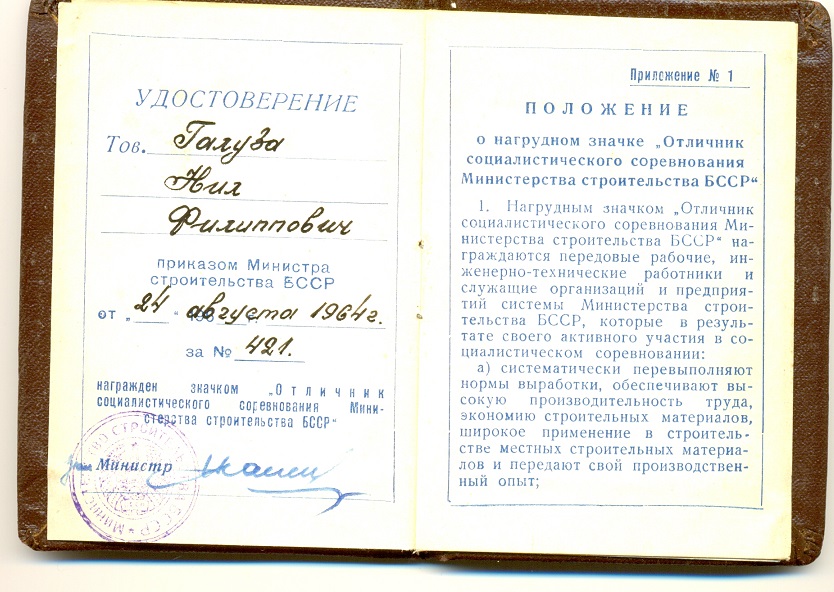 УДОСТОВЕРЕНИЕ
Тов. Галуза
Нил
Филиппович
приказом Министра
строительства БССР
от „24 августа 1964г.
за № 421.
награжден значком „Отличник
социалистического соревнования Мини-
стерства строительства БССР“
Министр
Приложение № 1
ПОЛОЖЕНИЕ
о нагрудном значке „Отличник
социалистического соревнования
Министерства строительства БССР“
1. Нагрудным значком „Отличник
социалистического соревнования Ми-
нистерства строительства БССР“ на-
граждаются передовые рабочие, ин-
женерно-технические работники и
служащие организаций и предприя-
тий системы Министерства строи-
тельства БССР, которые в резуль-
тате своего активного участия в со-
циалистическом соревновании:
а) систематически перевыполняют
нормы выработки, обеспечивают вы-
сокую производительность труда,
экономию строительных материалов,
широкое применение в строитель-
стве местных строительных материа-
лов и передают свой производствен-
ный опыт;